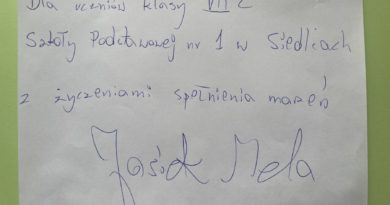 Dla uczniów klasy VII c
Szkoły Podstawowej nr 1 w Siedlcach
z życzeniami spełnienia marzeń
Jasiek Mela